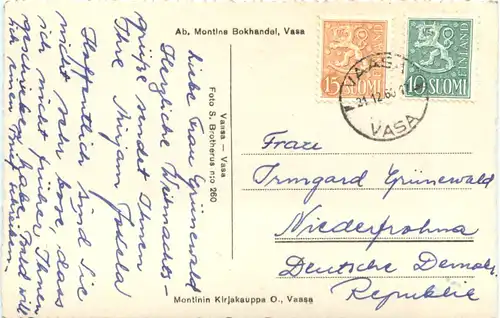 Ab. Montins Bokhandel, Vasa
Liebe Frau Grünewald
Herzliche Weihnachts-
grüße sendet Ihnen
Ihre Mirjam
Hoffentlich sind Sie
nicht sehr böse, dass
ich nicht früher Ihnen
geschrieben habe. Bald will
ich einen Brief schreiben.
Vaasa Vasa
Foto S. Brotherus n:o 260
15 SUOMI
FINLAND
10 SUOMI
VAASA
VASA
Frau
Irmgard Grünewald
Niederfrohna
Deutsche Demokr.
Republik
Montinin Kirjakauppa O., Vaasa